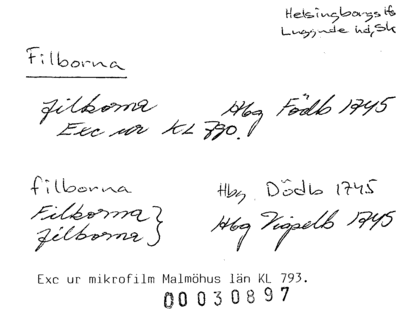 Helsingborgs lfs
Luggude hd, Sk
Filborna
filborna Hbg Födb 1745
Exc ur KL 790.
filborna Hbg Dödb 1745
Filborna}
filborna} Hbg Vigselb 1745
Exc ur mikrofilm Malmöhus län KL 793.
00030897